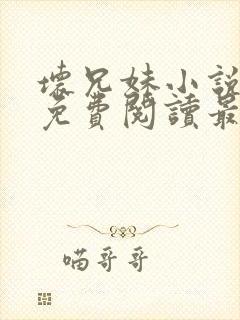 壞兄妹小說
免費閱讀最
喵哥哥